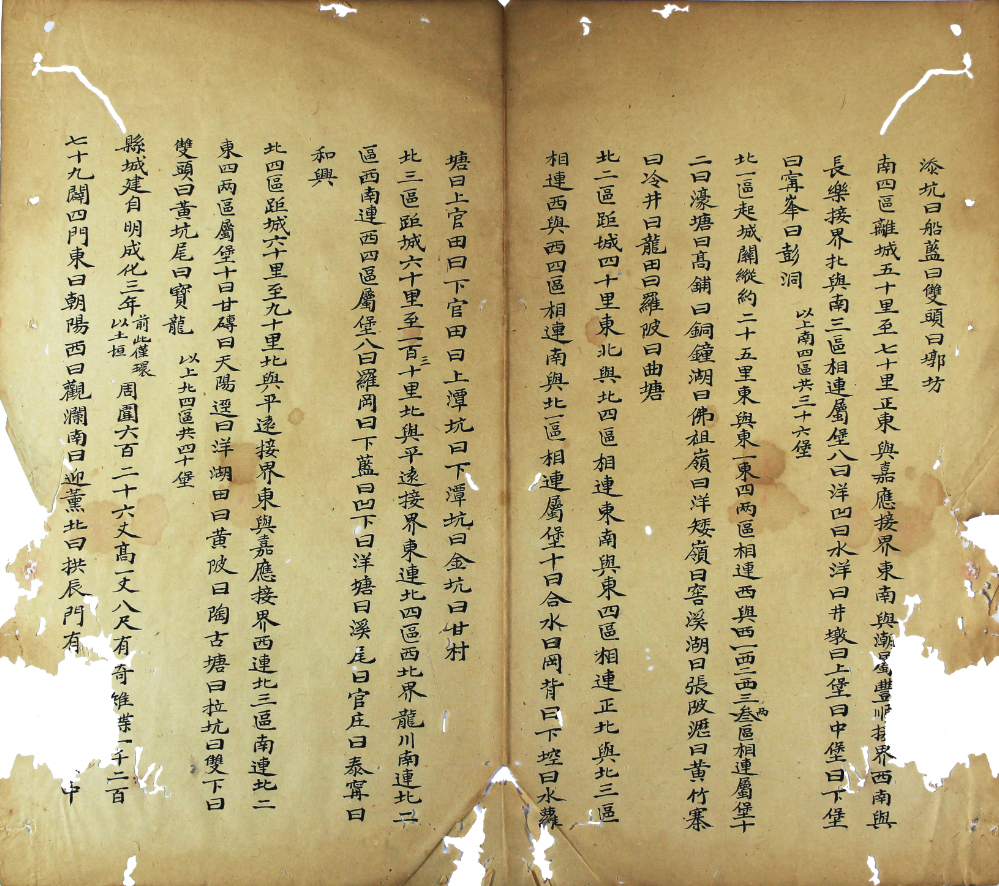 添坑曰船藍曰雙頭曰墎坊
南四區離城五十里至七十里正東與嘉應接界東南與潮屬豐順接界西南與
長樂接界北與南三區相連屬堡八曰洋凹曰水洋曰井墩曰上堡曰中堡曰下堡
曰寗峯曰彭洞 以上南四區共三十六堡
北一區起城闗縱約二十五里東與東一東四兩區相連西與西一西二西三叁兩區相連屬堡十
二曰濠塘曰髙鋪曰銅鐘湖曰佛祖嶺曰洋矮嶺曰窖溪湖曰張陂瀝曰黃竹寨
曰冷井曰龍田曰羅陂曰曲塘
北二區距城四十里東北與北四區相連東南與東四區相連正北與北三區
相連西與西四區相連南與北一區相連屬堡十曰合水曰岡背曰下埪曰水蘿
塘曰上官田曰下官田曰上潭坑曰下潭坑曰金坑曰甘村
北三區距城六十里至一百三十里北與平遠接界東連北四區西北界龍川南連北二
區西南連西四區屬堡八曰羅岡曰下藍曰凹下曰洋塘曰溪尾曰官庄曰泰寗曰
和興
北四區距城六十里至九十里北與平遠接界東與嘉應接界西連北三區南連北二
東四两區屬堡十曰廿磚曰天陽逕曰洋湖田曰黃陂曰陶古塘曰拉坑曰雙下曰
雙頭曰黃坑尾曰寶龍 以上北四區共四十堡
縣城建自明成化三年 前此僅環以土垣 周圍六百二十六丈高一丈八尺有奇雉堞一千二百
七十九闢四門東曰朝陽西曰觀瀾南曰迎薰北曰拱辰門有 中